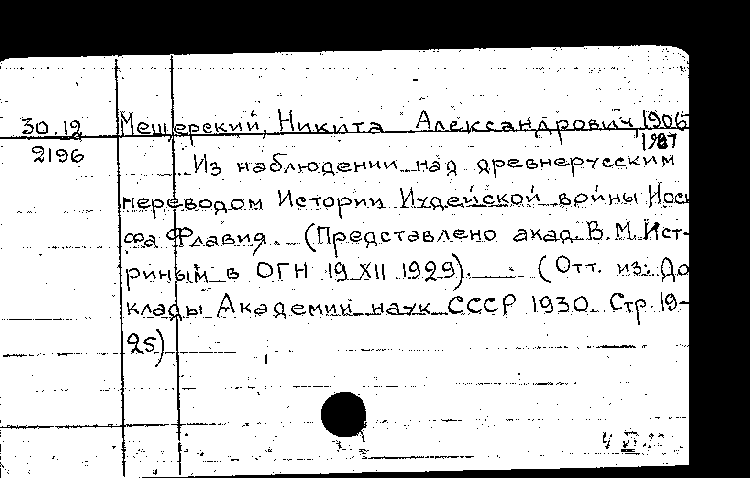 30.12 Мещерский, Никита Александрович, 1906
1987
2196 Из наблюдении над древнерусским
переводом Истории Иудейской войны Иоси
фа Флавия. (Представлено акад. В.М. Ист-
риным в ОГН 19 XII 1929). (Отт. из: До
клады Академии наук СССР 1930. Стр. 19-
25)